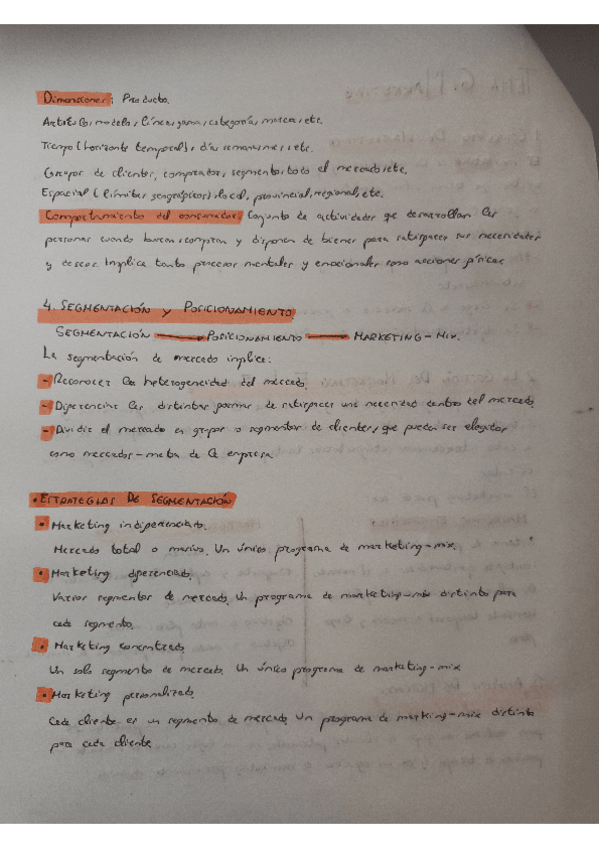 Dimensiones: Producto.
Artículo, modelo, línea, gama, categoría, marca, etc.
Tiempo (horizonte temporal): días, semanas, mes, etc.
Grupos de clientes, comprador, segmentos, todo el mercado, etc.
Espacial (límites geográficos): local, provincial, regional, etc.
Comportamiento del consumidor: Conjunto de actividades que desarrollan las
personas cuando buscan, compran y disponen de bienes para satisfacer sus necesidades
y deseos. Implica tanto procesos mentales y emocionales como acciones físicas
4. SEGMENTACIÓN Y POSICIONAMIENTO.
SEGMENTACIÓN POSICIONAMIENTO MARKETING-MIX.
La segmentación de mercado implica:
- Reconocer la heterogeneidad del mercado.
- Diferenciar las distintas formas de satisfacer una necesidad dentro del mercado.
- Dividir el mercado en grupos o segmentos de clientes, que puedan ser elegidos
como mercados-meta de la empresa.
• ESTRATEGIAS DE SEGMENTACIÓN
• Marketing indiferenciado.
Mercado total o masivo. Un único programa de marketing-mix.
• Marketing diferenciado.
Varios segmentos de mercado. Un programa de marketing-mix distinto para
cada segmento.
• Marketing concentrado.
Un solo segmento de mercado. Un único programa de marketing-mix
• Marketing personalizado.
Cada cliente es un segmento de mercado. Un programa de marking-mix distinto
para cada cliente